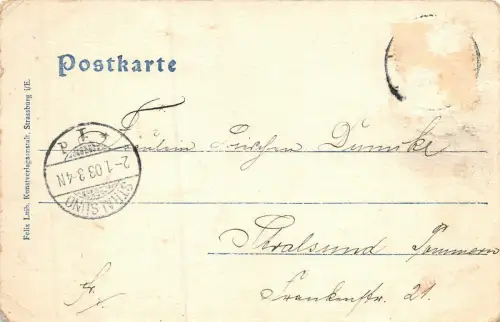 Postkarte
Felix Luib, Kunstverlagsanstalt, Strassburg i/E.
STRALSUND
2-1 03 3-4N
Fräulein
Stralsund Pommern
Frankenstr. 21.